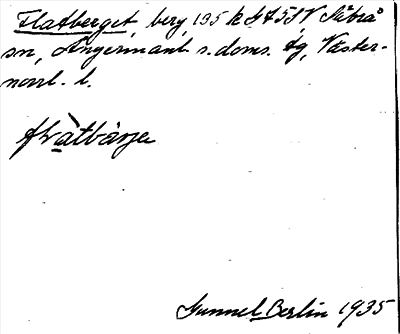 Flatberget, berg, 135 k G A 5 SV Säbrå
sn, Ångermanl. s. doms. tg, Väster-
norrl. l.
flàtbärje
Gunnel Berlin 1935